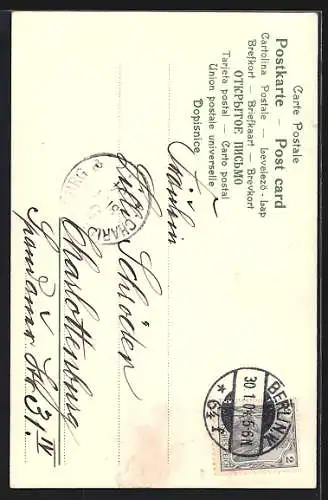 Carte Postale
Postkarte — Post card
Cartolina Postale — Levelező-Lap
Brefkort — Briefkaart — Brevkort
ОТКРЫТОЕ ПИСЬМО
Tarjeta postal — Carto postal
Union postale universelle
Dopisnice
Fräulein
Schröder
Charlottenburg
Spandauer Str 31 IV
BERLIN.W
30.1.04.5-6N
2